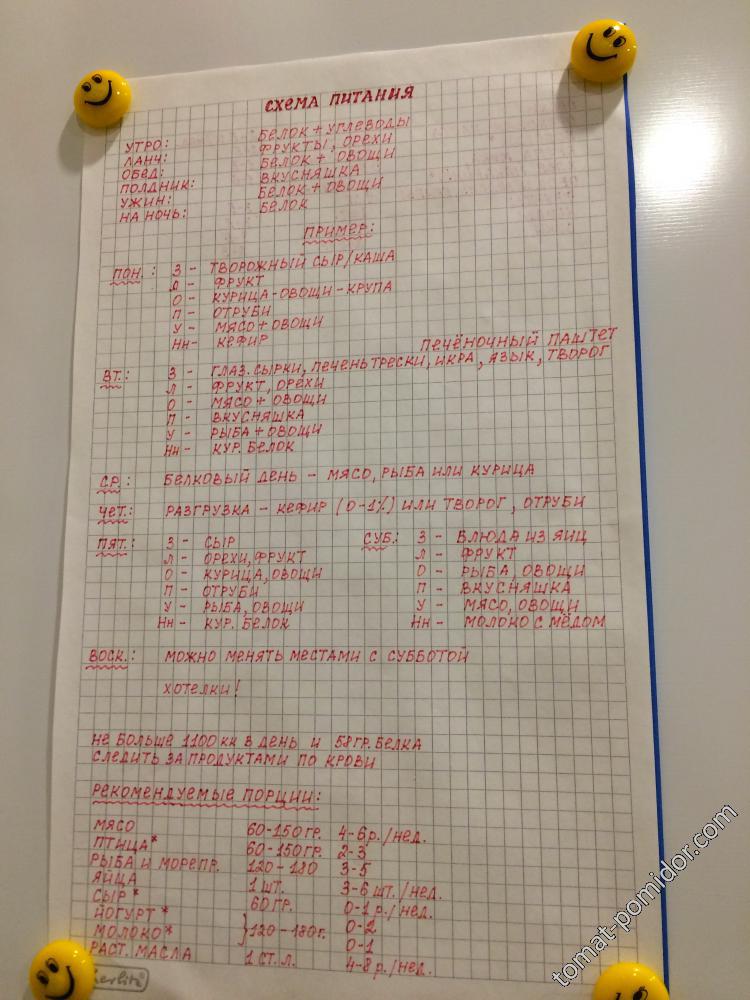 СХЕМА ПИТАНИЯ
УТРО: БЕЛОК + УГЛЕВОДЫ
ЛАНЧ: ФРУКТЫ, ОРЕХИ
ОБЕД: БЕЛОК + ОВОЩИ
ПОЛДНИК: ВКУСНЯШКА
УЖИН: БЕЛОК + ОВОЩИ
НА НОЧЬ: БЕЛОК
ПРИМЕР:
ПОН.: З - ТВОРОЖНЫЙ СЫР/КАША
Л - ФРУКТ
О - КУРИЦА-ОВОЩИ-КРУПА
П - ОТРУБИ
У - МЯСО + ОВОЩИ
НН - КЕФИР
ПЕЧЁНОЧНЫЙ ПАШТЕТ
ВТ.: З - ГЛАЗ. СЫРКИ, ПЕЧЕНЬ ТРЕСКИ, ИКРА, ЯЗЫК, ТВОРОГ
Л - ФРУКТ, ОРЕХИ
О - МЯСО + ОВОЩИ
П - ВКУСНЯШКА
У - РЫБА + ОВОЩИ
НН - КУР. БЕЛОК
СР.: БЕЛКОВЫЙ ДЕНЬ - МЯСО, РЫБА ИЛИ КУРИЦА
ЧЕТ.: РАЗГРУЗКА - КЕФИР (0-1%) ИЛИ ТВОРОГ, ОТРУБИ
ПЯТ.: З - СЫР
Л - ОРЕХИ, ФРУКТ
О - КУРИЦА, ОВОЩИ
П - ОТРУБИ
У - РЫБА, ОВОЩИ
НН - КУР. БЕЛОК
СУБ.: З - БЛЮДА ИЗ ЯИЦ
Л - ФРУКТ
О - РЫБА, ОВОЩИ
П - ВКУСНЯШКА
У - МЯСО, ОВОЩИ
НН - МОЛОКО С МЁДОМ
ВОСК.: МОЖНО МЕНЯТЬ МЕСТАМИ С СУББОТОЙ
ХОТЕЛКИ!
НЕ БОЛЬШЕ 1100 КК В ДЕНЬ И 58 ГР. БЕЛКА
СЛЕДИТЬ ЗА ПРОДУКТАМИ ПО КРОВИ
РЕКОМЕНДУЕМЫЕ ПОРЦИИ:
МЯСО 60-150 ГР. 4-6 Р./НЕД.
ПТИЦА* 60-150 ГР. 2-3
РЫБА И МОРЕПР. 120-180 3-5
ЯЙЦА 1 ШТ. 3-6 ШТ./НЕД.
СЫР* 60 ГР. 0-1 Р./НЕД.
ЙОГУРТ* } 120-180 Г. 0-2
МОЛОКО* 0-1
РАСТ. МАСЛА 1 СТ. Л. 4-8 Р./НЕД.
tomat-pomidor.com